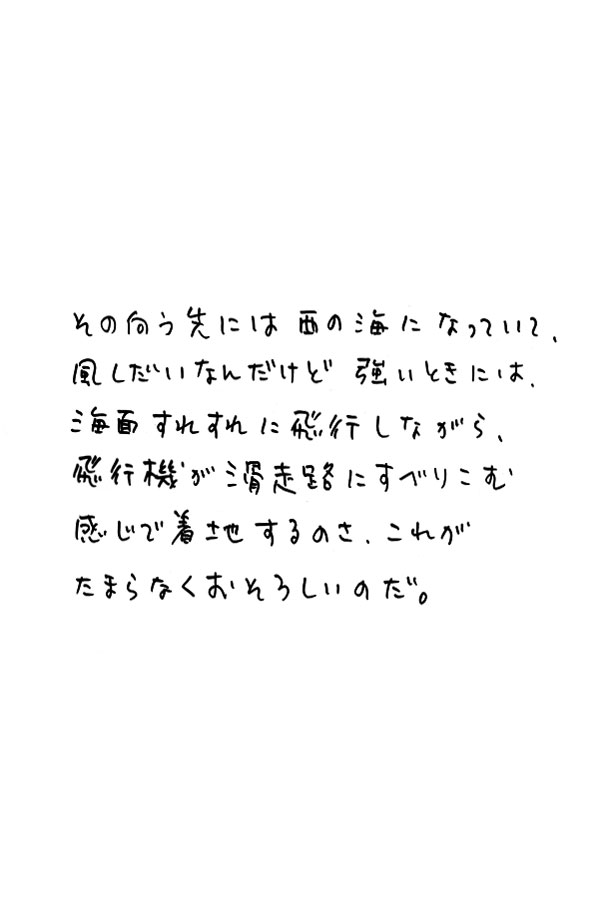 その向う先には西の海になっていて、
風しだいなんだけど 強いときには、
海面すれすれに飛行しながら、
飛行機が滑走路にすべりこむ
感じで着地するのさ、これが
たまらなくおそろしいのだ。